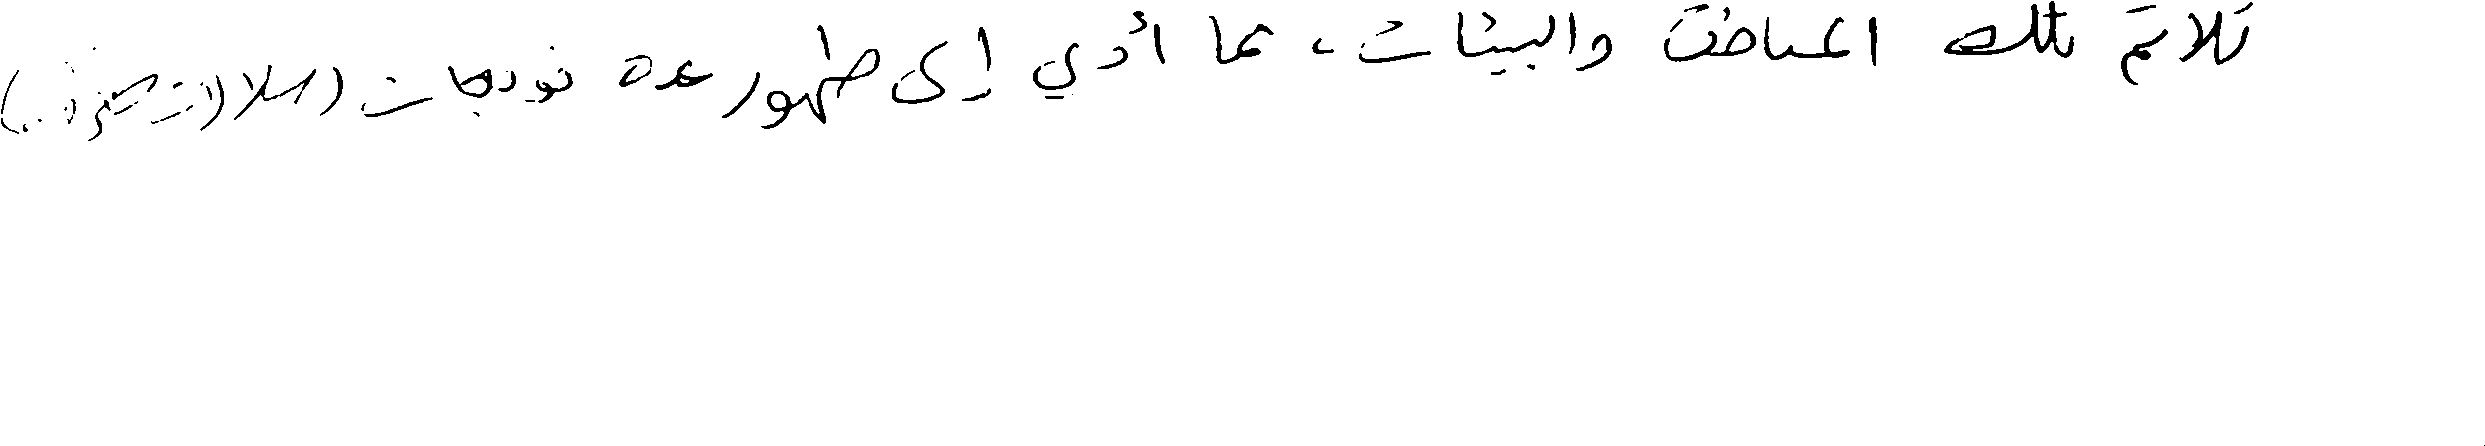 تلائم تلك المناطق والبيئات، مما أدي إلى ظهور عدة نودجات (سلالات متميزة..)